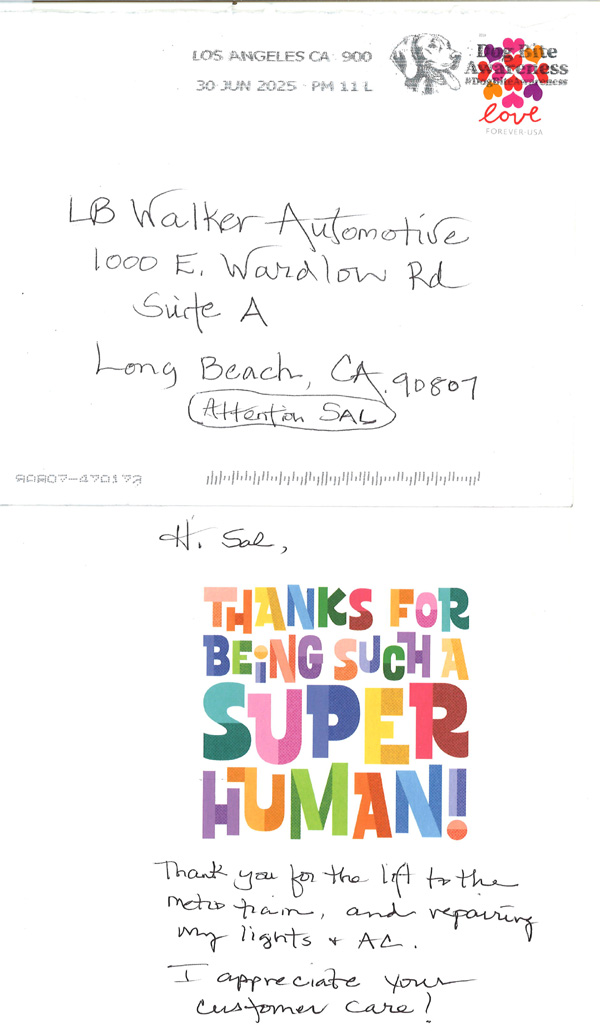 LOS ANGELES CA 900
30 JUN 2025 PM 11 L
Dog Bite
Awareness
#DogBiteAwareness
love
FOREVER-USA
LB Walker Automotive
1000 E. Wardlow Rd
Suite A
Long Beach, CA. 90807
Attention SAL
90807-470173
Hi Sal,
THANKS FOR
BEING SUCH A
SUPER
HUMAN!
Thank you for the lift to the
metro train, and repairing
my lights + AC.
I appreciate your
customer care!